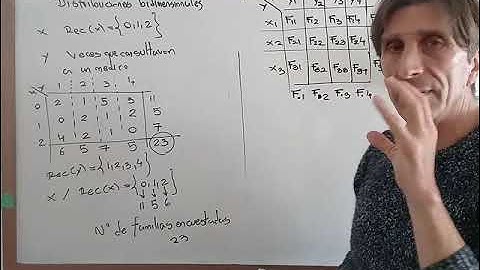 Distribuciones bidimensionales
X Rec(x)={0,1,2}
Y Veces que consultaron
a un medico
1 2 3 4
0 2 1 5 3 11
1 0 2 1 2 5
2 4 2 1 0 7
6 5 7 5 23
Rec(y)={1,2,3,4}
X / Rec(x)={0,1,2}
11 5 6
N° de familias encuestadas
23
X1 F11
X2 F21 F22 F23 F24
X3 F31 F32 F33 F34
F.1 F.2 F.3 F.4